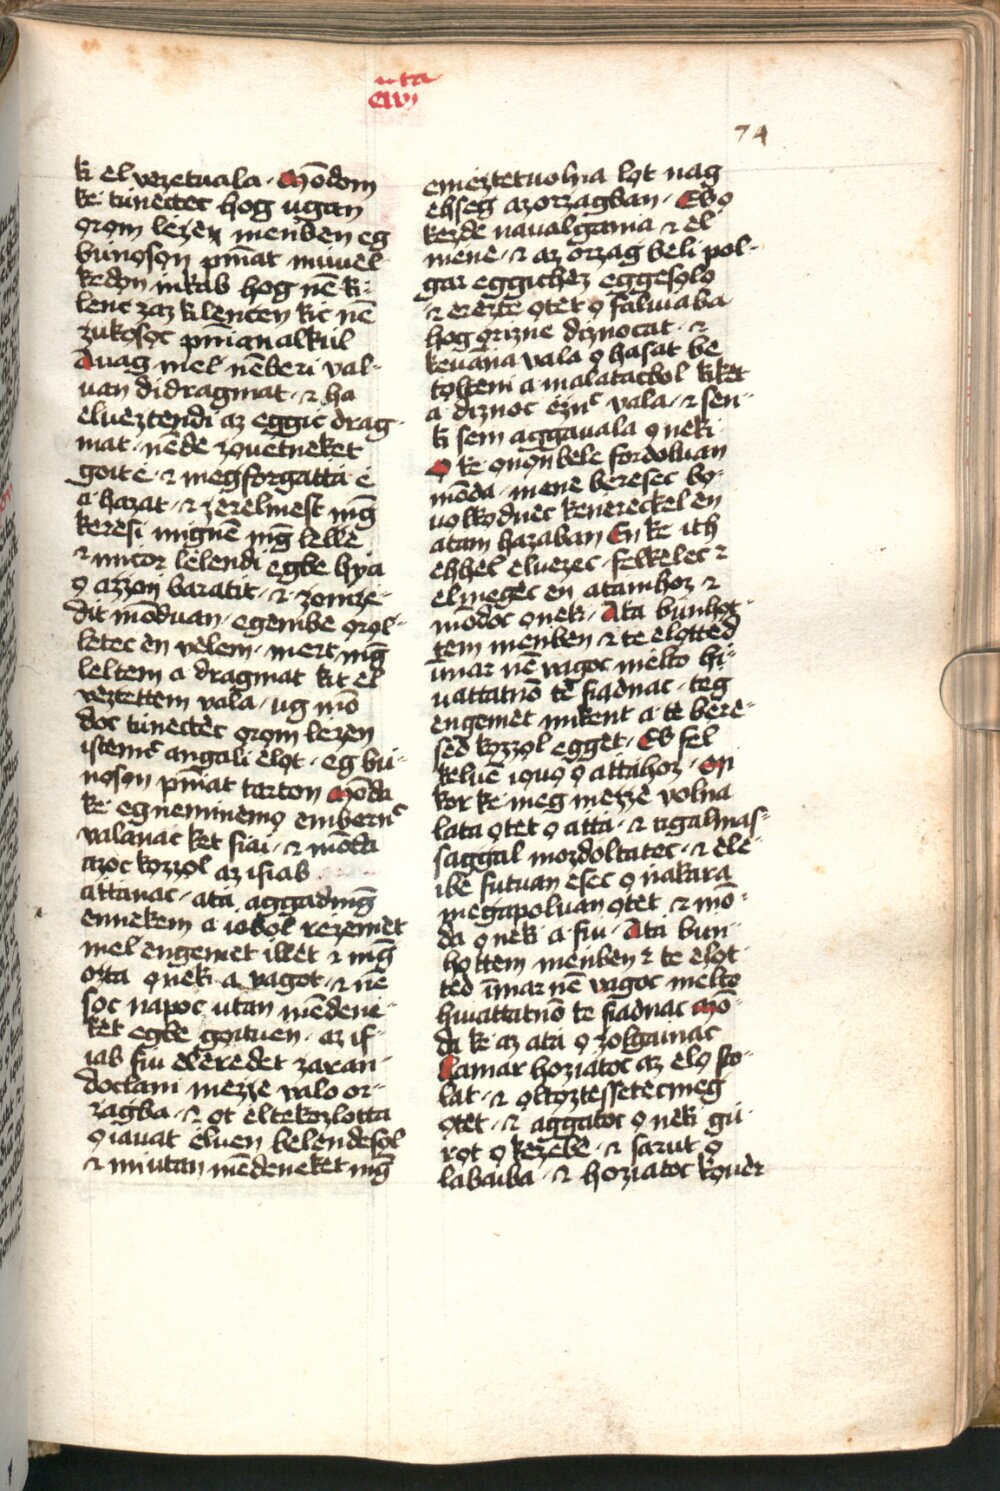 74
ki el vezetuala · Mōdom
ke tinectec hog ugan
ọrọm lezen menden eg
bunọsọn pniat̄ muuel-
kedọn inkab hog nē ki-
lenc zaz kilencen kic nē
zukọsọc pnianalkul
Auag mel nēberi val-
uan didragmat · ⁊ ha
elueztendi az eggic drag-
mat · nēde zọuetneket
goit é · ⁊ megforgatta é
a hazat · ⁊ zerelmest mḡ
keresi mignē mḡ lelle
⁊ micor lelendi egbe hyia
ọ azzoń baratit · ⁊ zomze-
dit mōduan · egembe ọrọl-
letec en velem · mert mḡ
leltem a dragmat kit el
veztettem vala · ug mō
doc tinectèc ọrọm lezen
istenn̄c angali èlọt · eg bu-
nọsọn pniat̄ tarton Mōda
ke eg neminemọ embern̄c
valanac ket fiai · ⁊ mōda
azoc kozzọl az ifiab
attanac · ata aggadmḡ
ennekem a iobol rezemet
mel engemet illet ⁊ mḡ
ozta ọnekic a vagot · ⁊ nē
soc napoc utan mēdene-
ket egbe goituen · az if-
iab fiu elèredet zaran-
doclani mezze valo or-
zagba · ⁊ ot eltekozlotta
ọ iauat èluen belendesọl
⁊ miutan mēdeneket mḡ
emeztetuolna lọt nag
èhseg azorzagban · Es ọ
kezde naualgania ⁊ èl
mene · ⁊ az orzag beli pol-
gar eggichez eggesọlọ
⁊ ereztè ọtet ọ faluiaba
hog ọrizne diznocat · ⁊
keuāńa vala ọ hasat be
tọlteni a malatacbol kiket
a diznoc èzn̄c vala · ⁊ sen-
ki sem aggauala ọneki
Ọ ke ọnọn bele fordoluan
mōda · mene beresec bọ-
uolkọdnec keńereckel en
atam hazaban En ke ith
èhhel eluezec · felkelec ⁊
elmegec en atamhoz ⁊
mōdoc ọneki · Ata bunhọt-
tem menben ⁊ te elọtted
im̄mar nē vagoc melto hi-
uattatnō te fiadnac · teg
engemet mikent a te bere-
sed kozzọl egget · Es fel
keluē iọuọ ọ attahoz · Mi
kor ke meg mezze volna
lata ọtet ọ atta · ⁊ irgalmas-
saggal mozdoltatec · ⁊ ele-
ibe futuan esec ọ nakara
megapoluan ọtet · ⁊ mō-
da ọneki a fiu · Ata bun-
họttem menben ⁊ te elọt-
ted im̄mar nē vagoc melto
hiuattatnō te fiadnac Mō-
da ke az ata ọ zolgainac
Hamar hoziatoc az elsọ sto-
lat · ⁊ ọltọztessetecmeg
ọtet · ⁊ aggatoc ọneki gu-
rọt ọ kezebe · ⁊ sarut ọ
labaiba · ⁊ hoziatoc kọuer